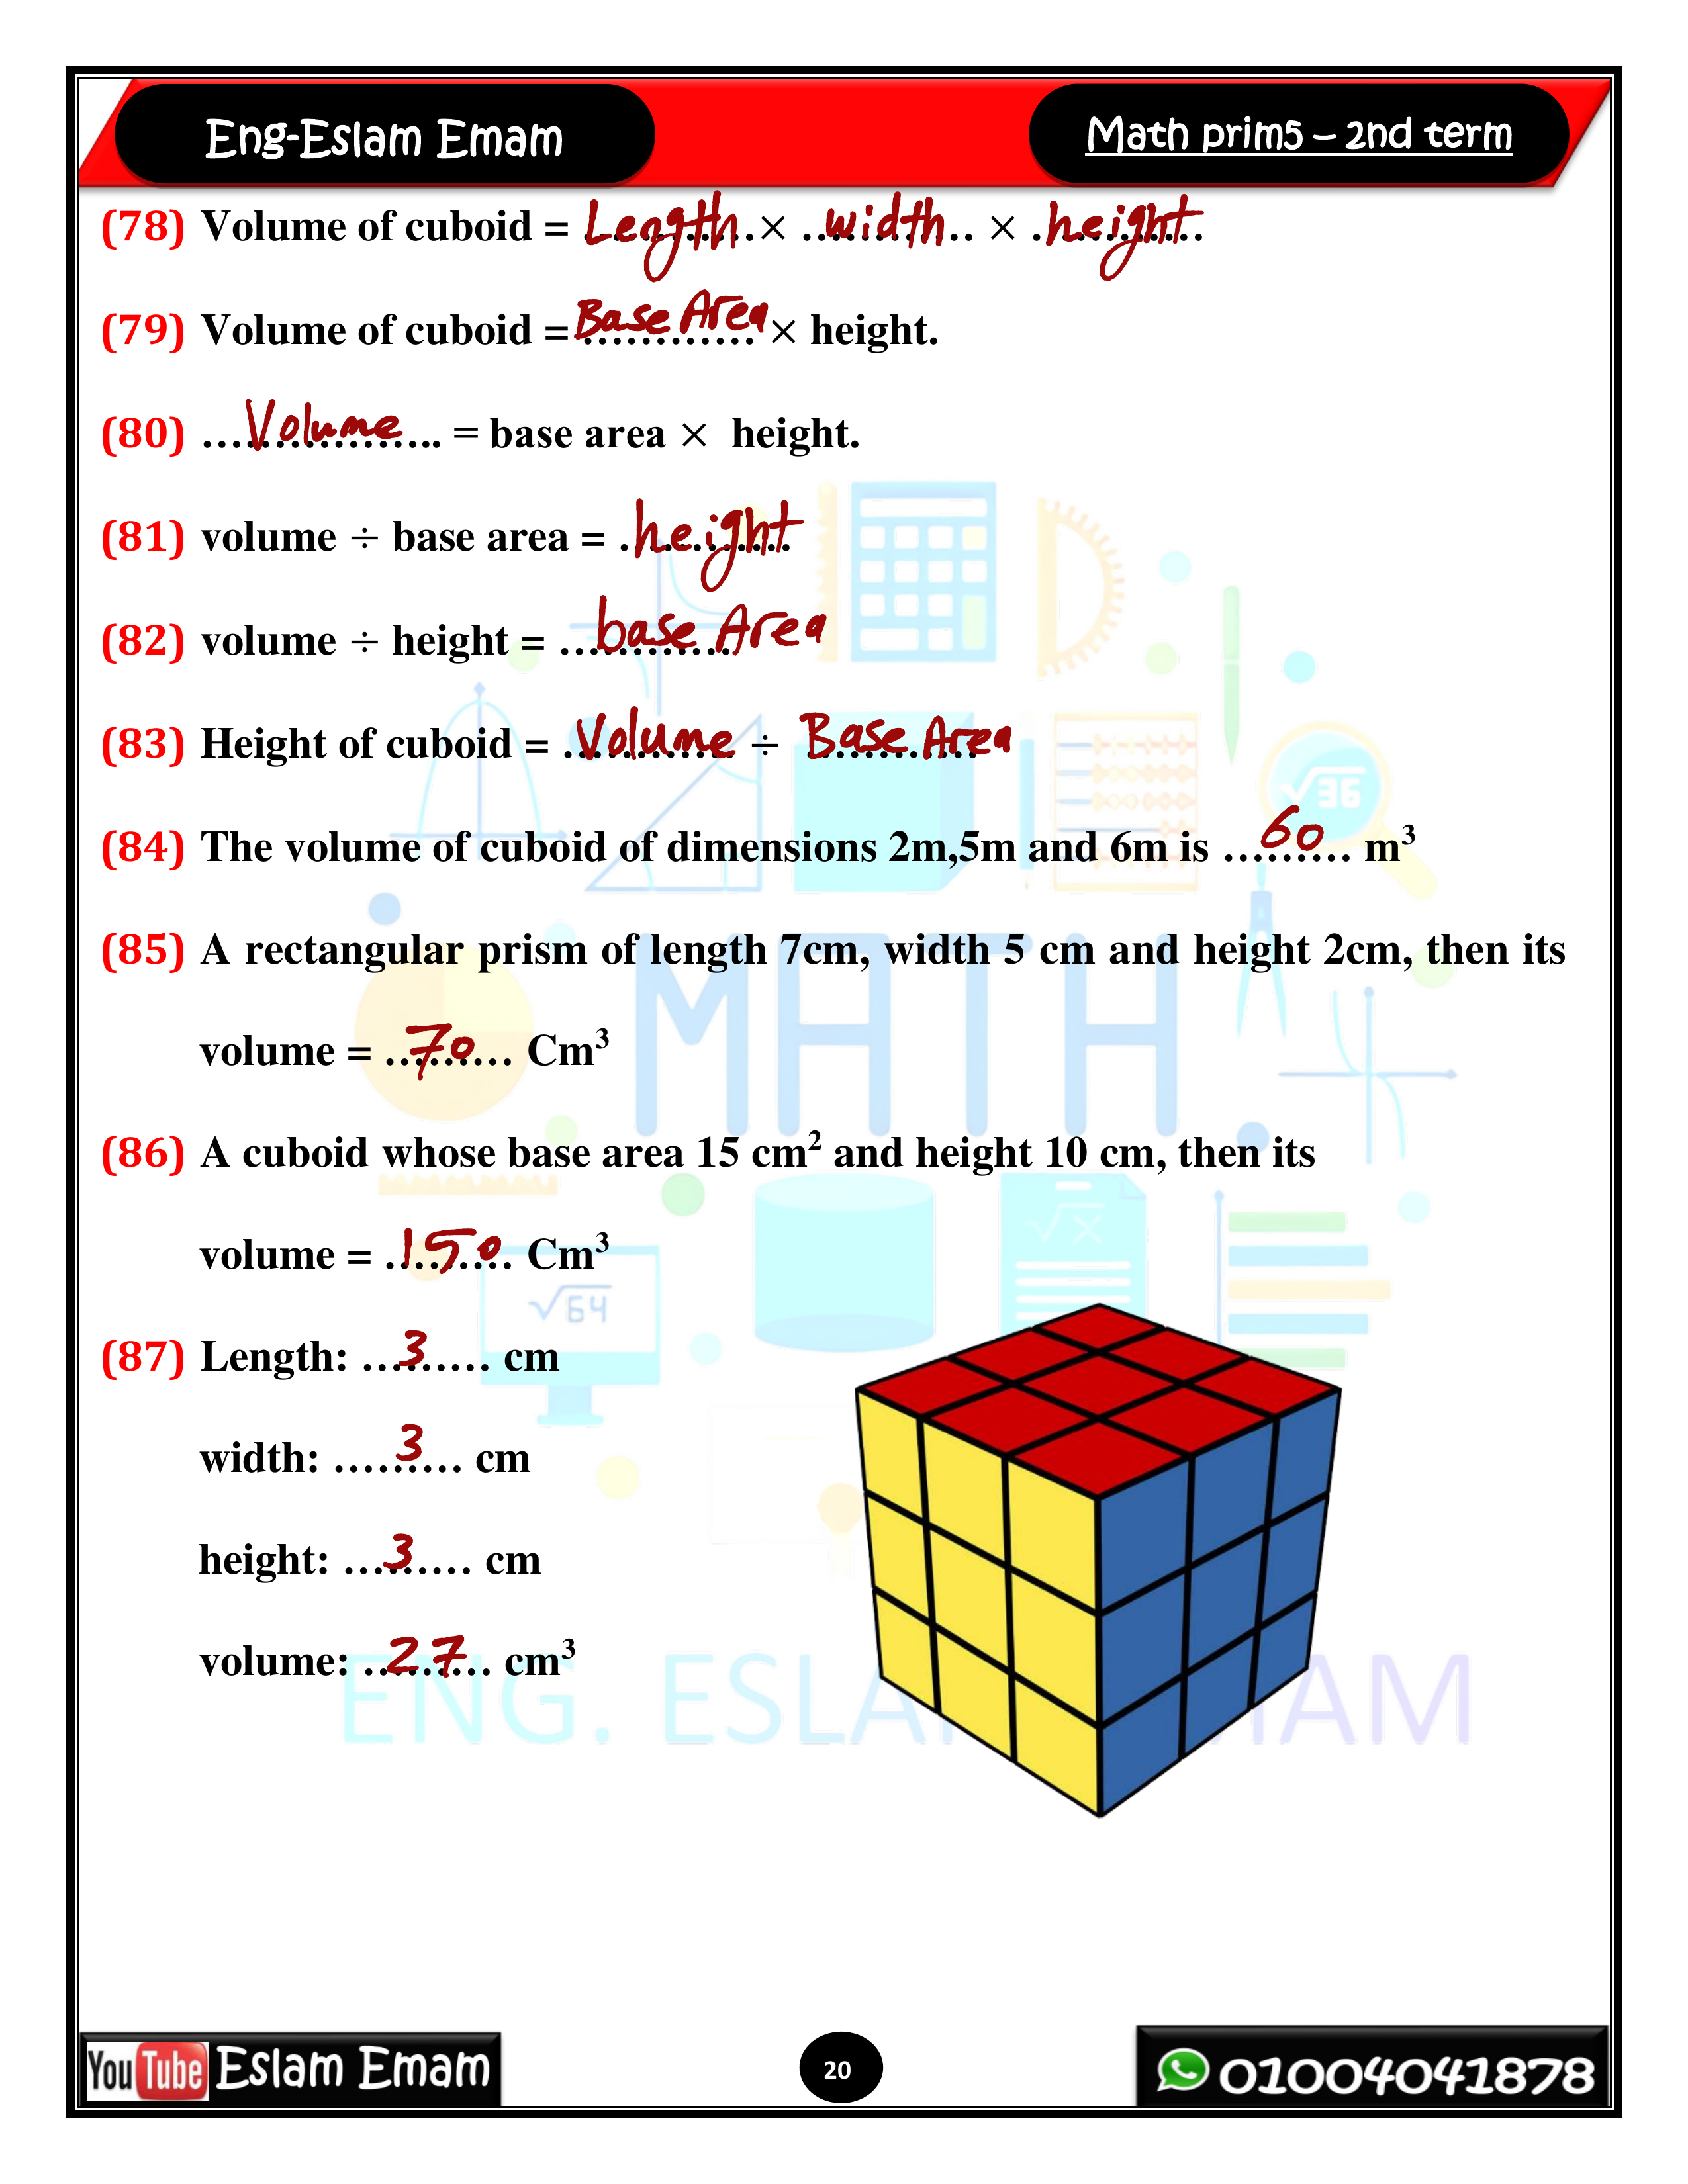 Eng-Eslam Emam
Math prim5 – 2nd term
(78) Volume of cuboid = Length × width × height
(79) Volume of cuboid = Base Area × height.
(80) Volume = base area × height.
(81) volume ÷ base area = height
(82) volume ÷ height = base Area
(83) Height of cuboid = Volume ÷ Base Area
(84) The volume of cuboid of dimensions 2m,5m and 6m is 60 m³
(85) A rectangular prism of length 7cm, width 5 cm and height 2cm, then its
volume = 70 Cm³
(86) A cuboid whose base area 15 cm² and height 10 cm, then its
volume = 150 Cm³
(87) Length: 3 cm
width: 3 cm
height: 3 cm
volume: 27 cm³
√36
MATH
√x
√64
ENG. ESLA AM
YouTube Eslam Emam
20
01004041878